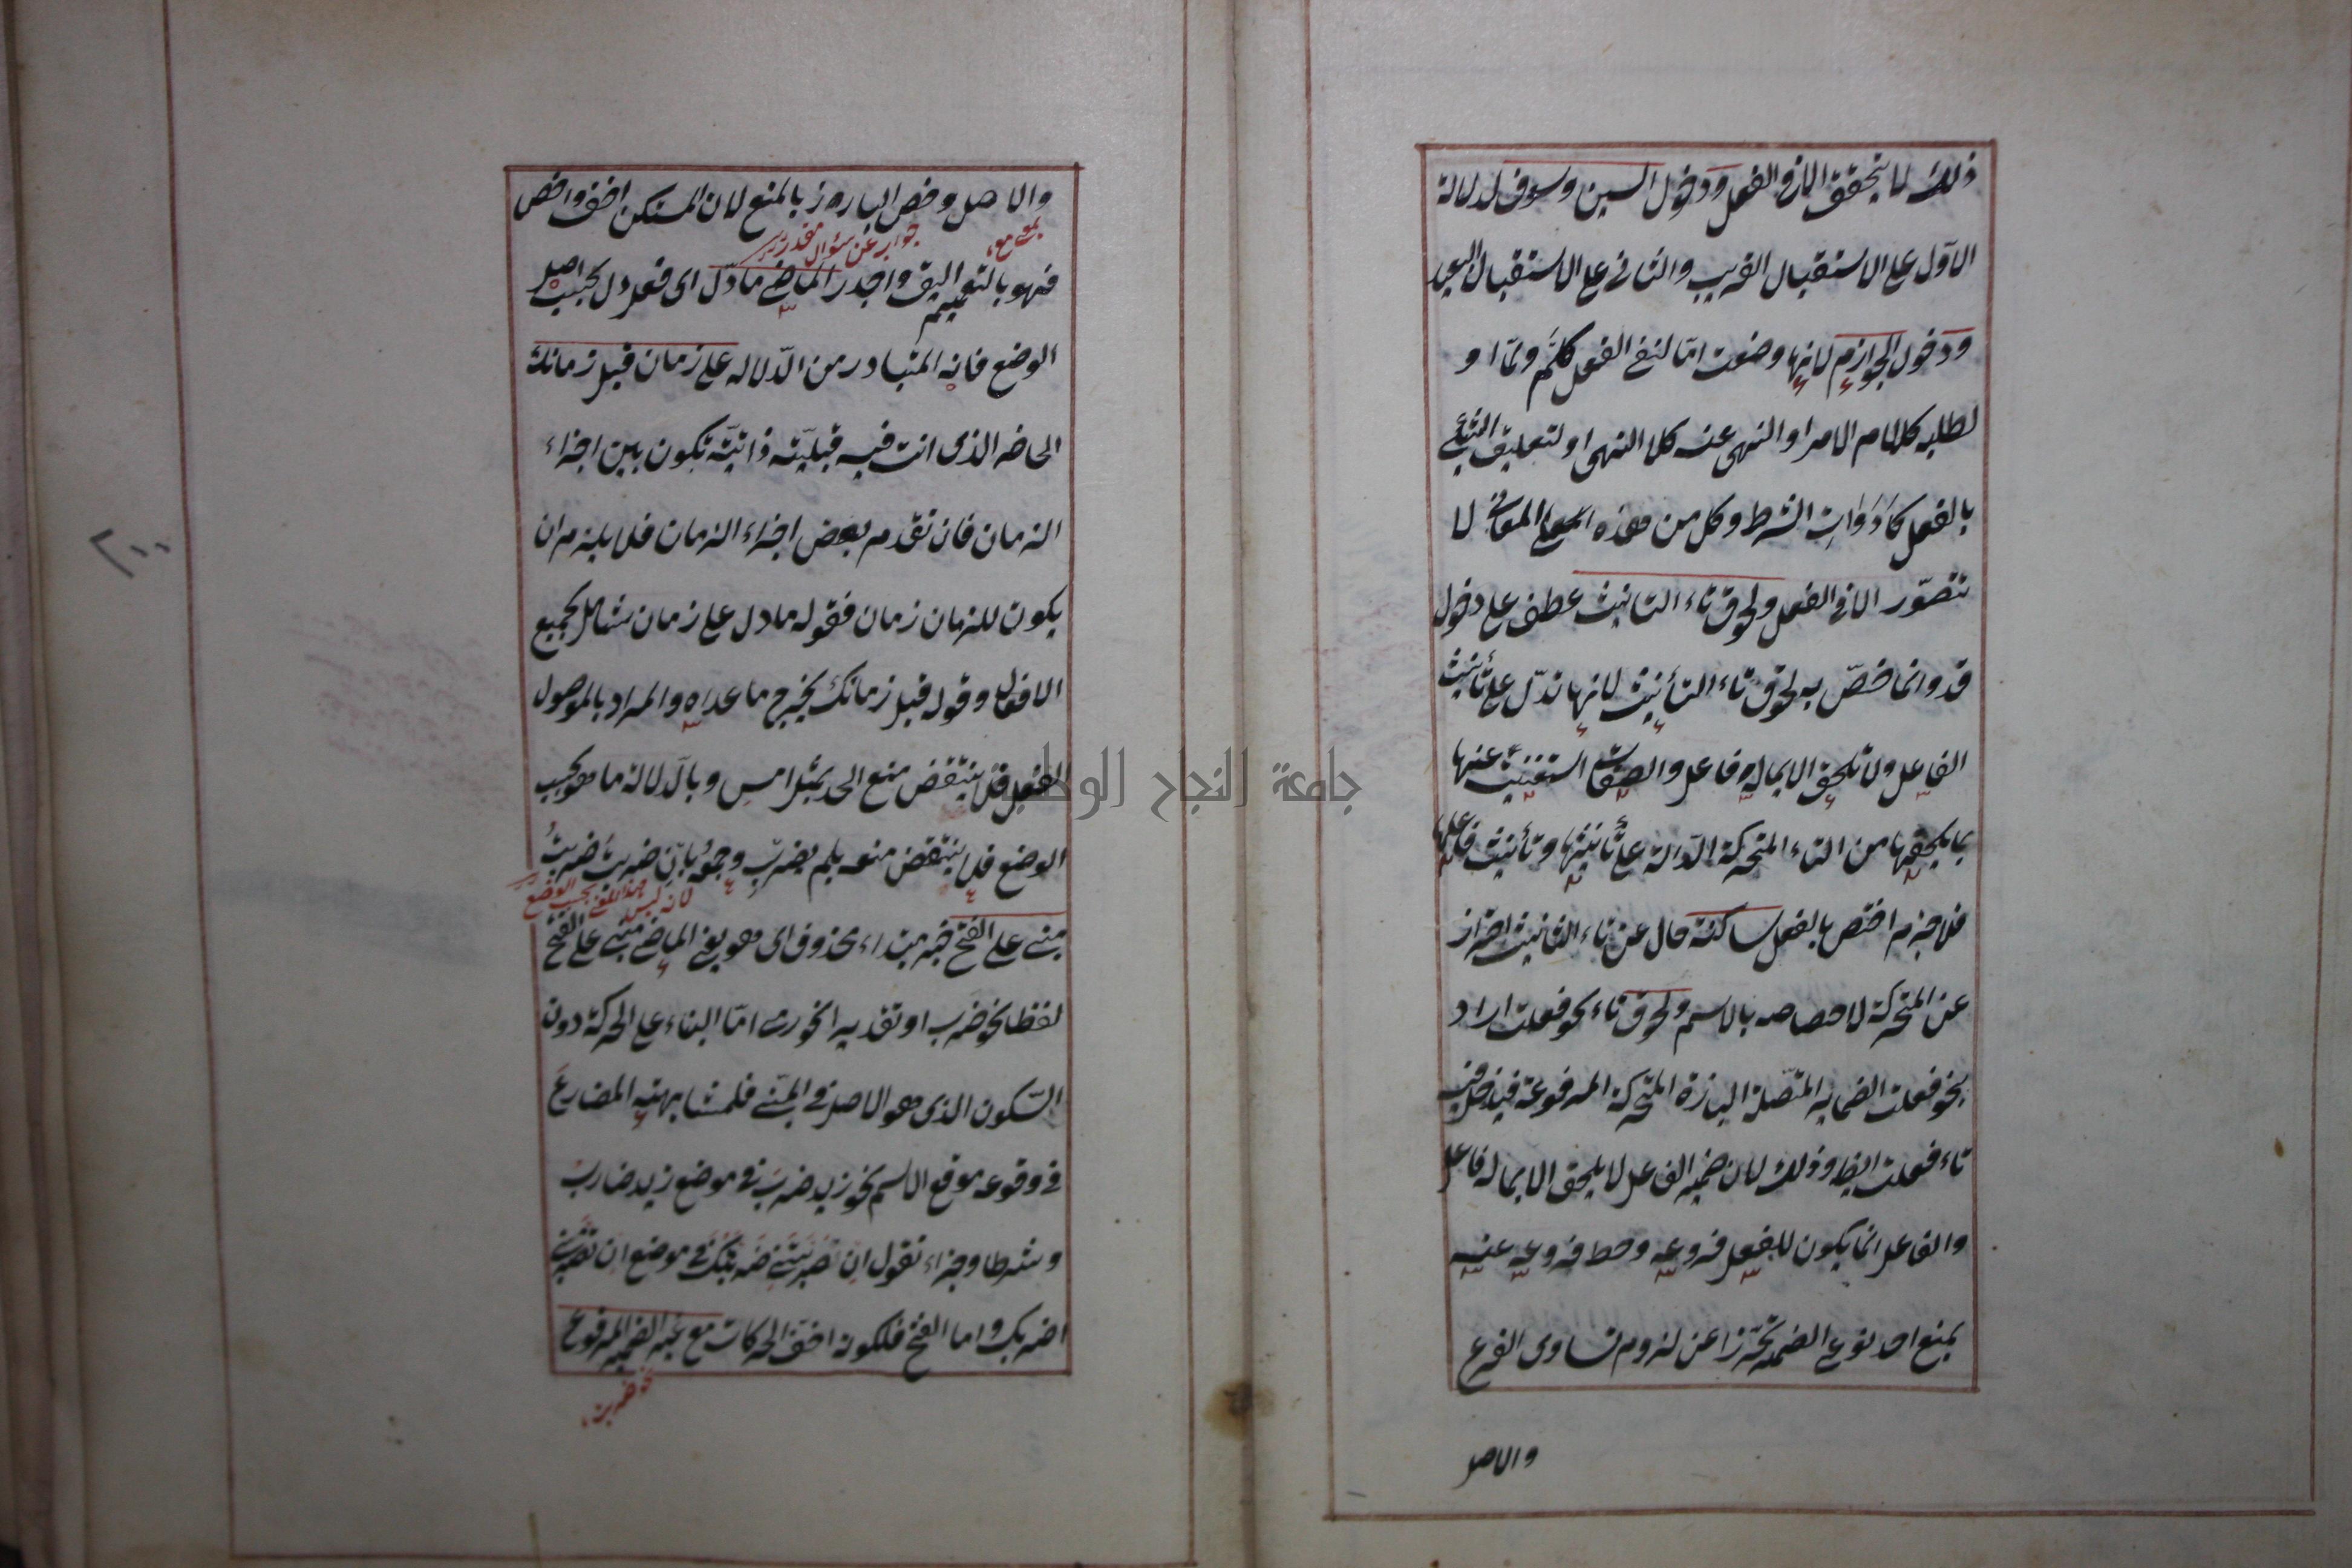 ذلك لا يتحقق الا في الفعل ودخول السين وسوف لدلالة
الاوّل على الاستقبال القريب والثاني على الاستقبال البعيد
ودخول الجوازم لانها وضعت امّا لنفي الفعل كلَم ولمّا او
لطلبه كلام الامر او النهي عنه كلا النهي او لتعليق الشئ
بالفعل كاَدَوَاتِ الشرط وكل من هذه المعاني لا
تتصوّر الا في الفعل ولحوق تاء التانيث عطف على دخول
قد وانما خصّ به لحوق تاء التأنيث لانها تدلّ على تأنيث
الفاعل ولا تلحق الا بماله فاعل والصفات استغنيت عنها
بما يلحقها من التاء المتحركة الدالة على تأنيثها وتأنيث فاعلها
فلا جزم اختص بالفعل ساكنة حال عن تاء التانيث احتراز
عن المتحركة لاختصاصه بالاسم ولحوق تاء نحو فعلت اراد
بنحو فعلت الضماير المتّصلة البارزة المتحركة المرفوعة فيدخل فيه
تاء فعلت ايضا وذلك لان ضمير الفاعل لا يلحق الا بماله فاعل
والفاعل انما يكون للفعل فروعه وحط فروعه عنه
بمنع احد نوعي الضمير تحرّزا عن لزوم تساوى الفرع
والاصل
والاصل وخص البارز بالمنع لان المستكن اخف واخص
بمعنى مع
جواب عن سؤال مقدر
فهو بالتعميم اليق واجدر الماضي ما دلّ اى فعل دل بحسب اصل
الوضع فانه المتبادر من الدّلاله على زمان قبل زمانك
الحاضر الذى انت فيه قبليّة ذاتيّة تكون بين اجزاء
الزمان فان تقدم بعض اجزاء الزمان فلا يلزم ان
يكون للزمان زمان فقوله ما دل على زمان شامل لجميع
الافعال وقوله قبل زمانك يخرج ما عداه والمراد بالموصول
الفعل فلا ينتقض منع الحد بمثل امسِ وبالدّلالة ما هو بحسب
الوضع فلا ينتقض منعه بلم يضرب وجمعُه بانْ ضربتَ ضربتُ
لانه ليس هذا المعنى بحسب الوضع
مبني على الفتح خبر مبتداء محذوف اى هو يعني الماضي مبني على الفتح
لفظا نحو ضرب او تقديرا نحو رمى امّا البناء على الحركة دون
السّكون الذى هو الاصل في المبني فلمشابهته المضارعَ
في وقوعه موقع الاسم نحو زيد ضربَ في موضع زيد ضارب
وشرطا وجزاء تقول ان ضربتني ضربتك في موضع ان تضربني
اضربك واما الفتح فلكونه اخفّ الحركات مع غير الضمير المرفوع
نحو ضربن
٢٠٠
جامعة النجاح الوطنية